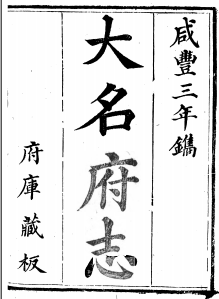 咸豐三年鐫
大名府志
府庫藏板